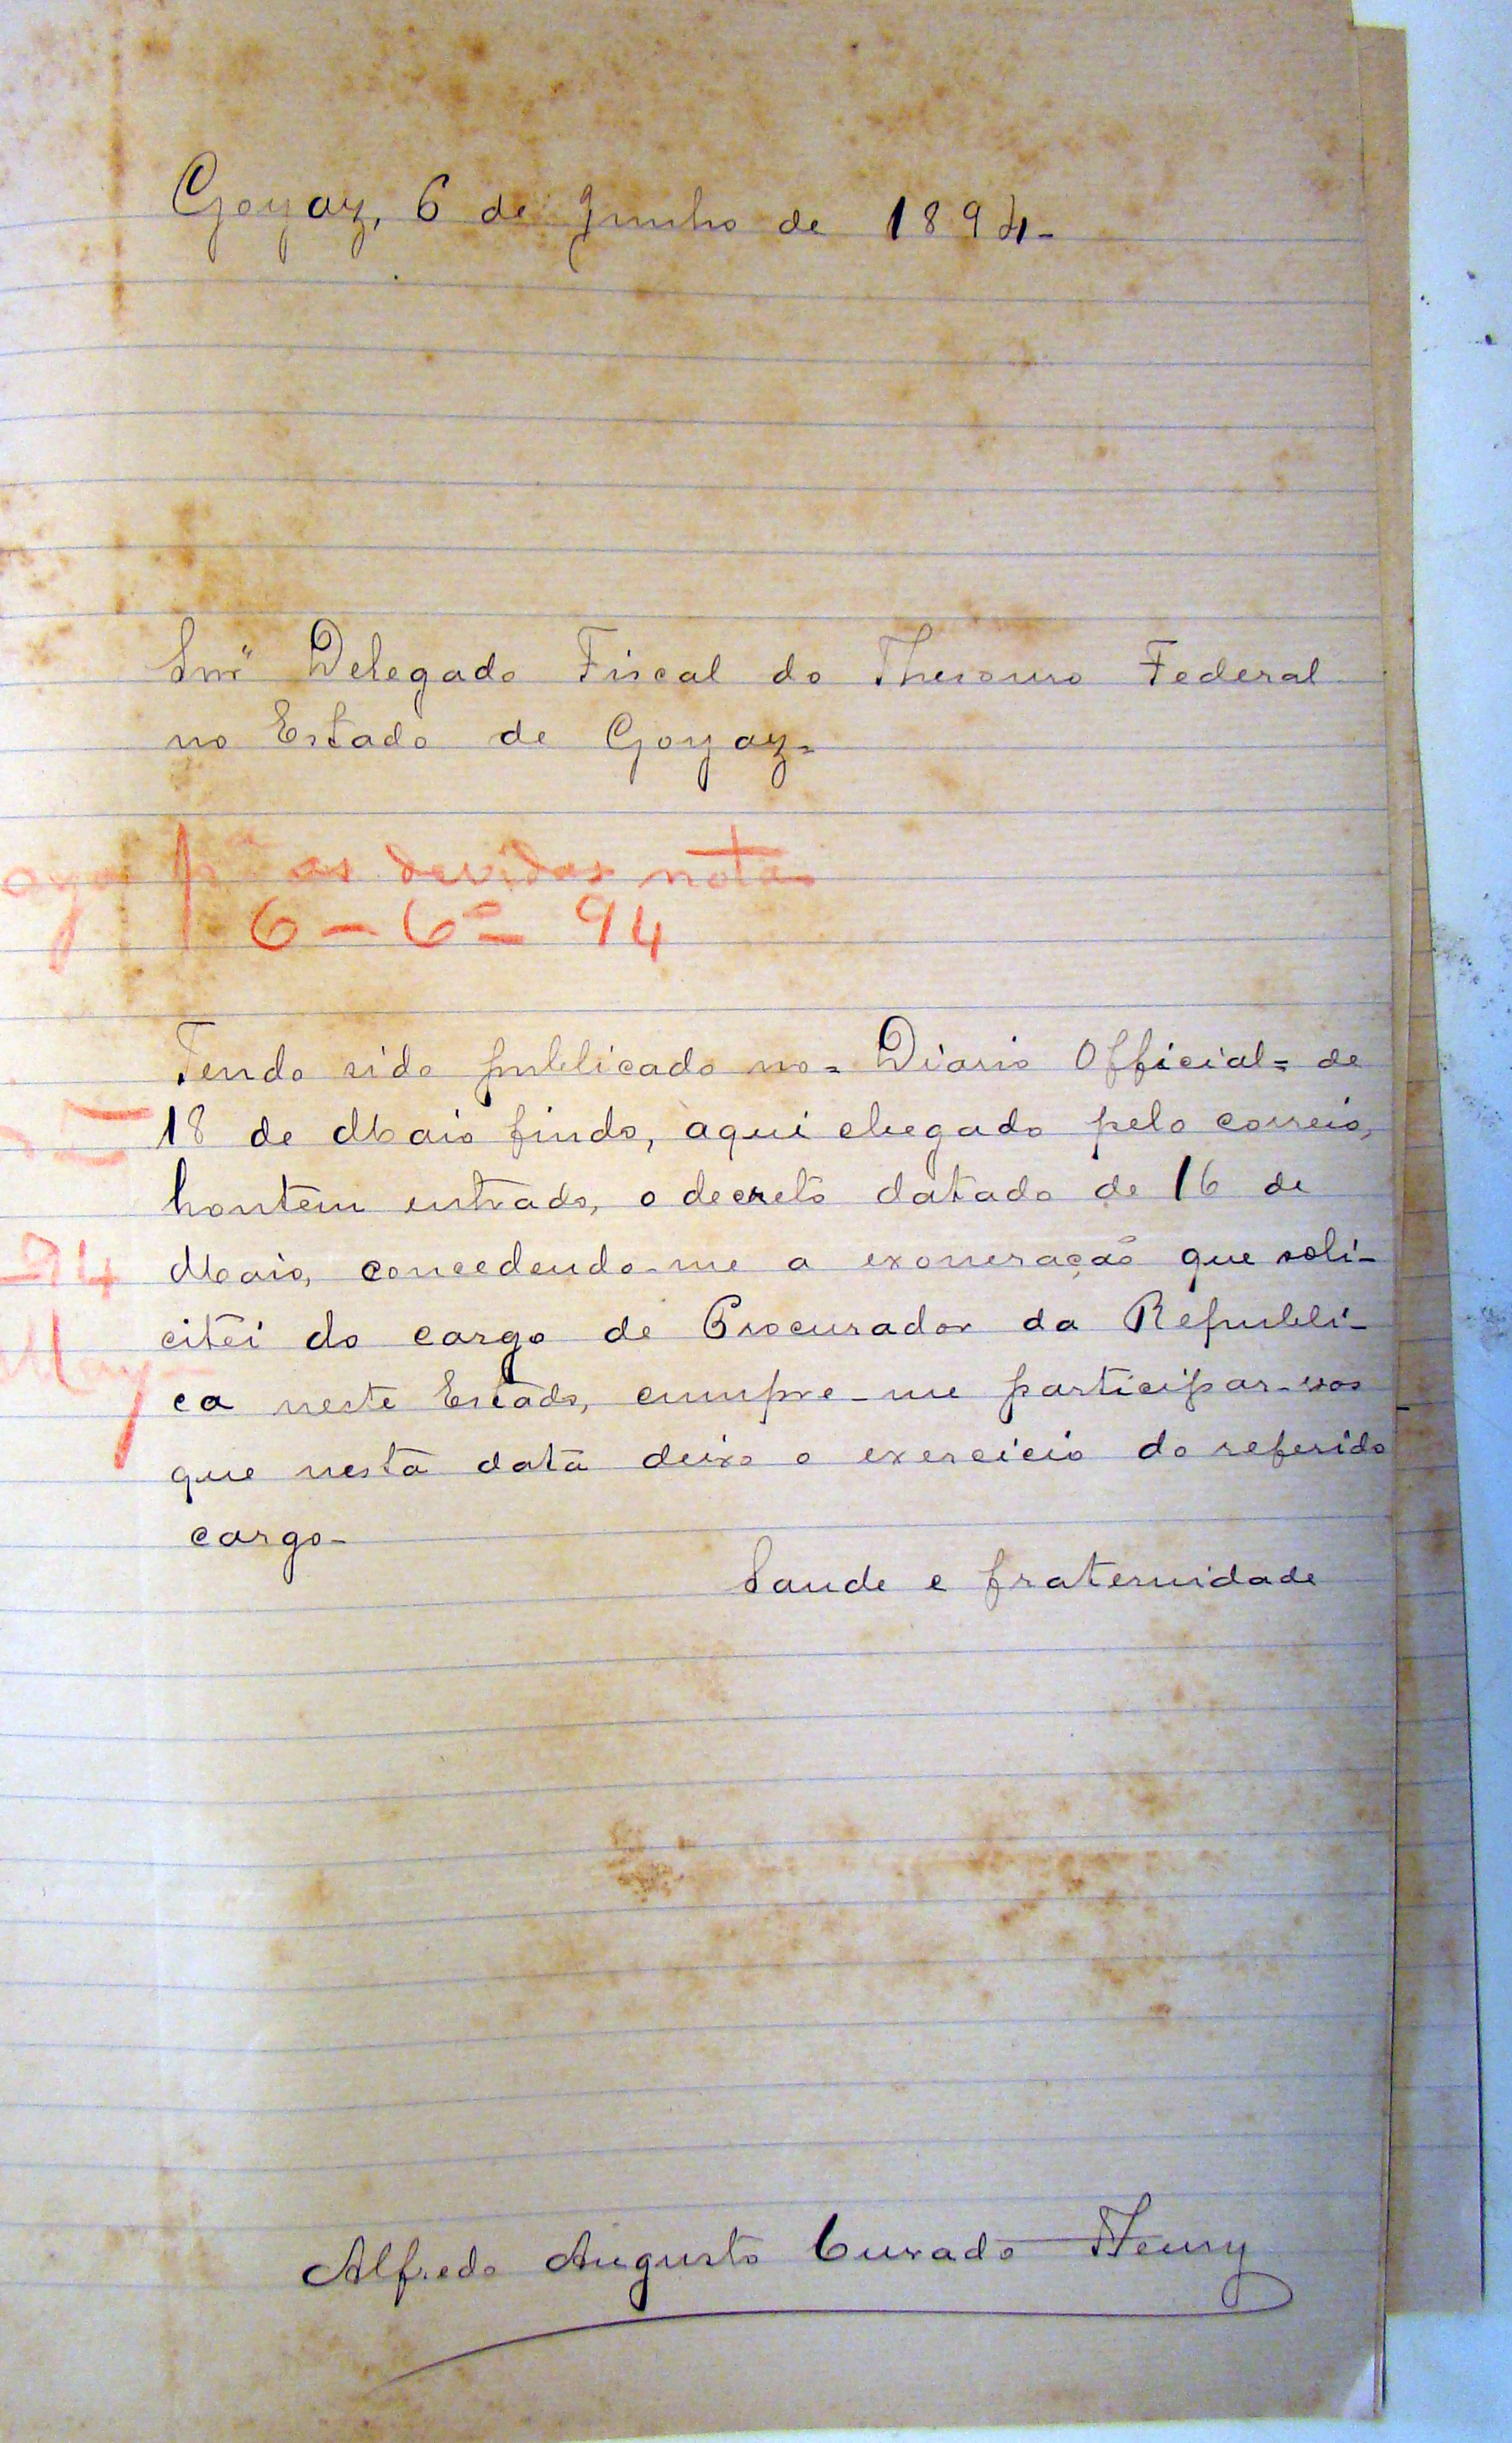 Goyaz, 6 de Junho de 1894-
Snr" Delegado Fiscal do Thesouro Federal
no Estado de Goyaz=
pª as devidas notas
6 - 6º - 94
Tendo sido publicado no= Diario Official= de
18 de Maio findo, aqui chegado pelo correio,
hontem entrado, o decreto datado de 16 de
-94
Maio, concedendo-me a exoneração que soli-
citei do cargo de Procurador da Republi-
ca neste Estado, cumpre-me participar-vos
que nesta data deixo o exercicio do referido
cargo-
Saude e fraternidade
Alfredo Augusto Curado Fleury